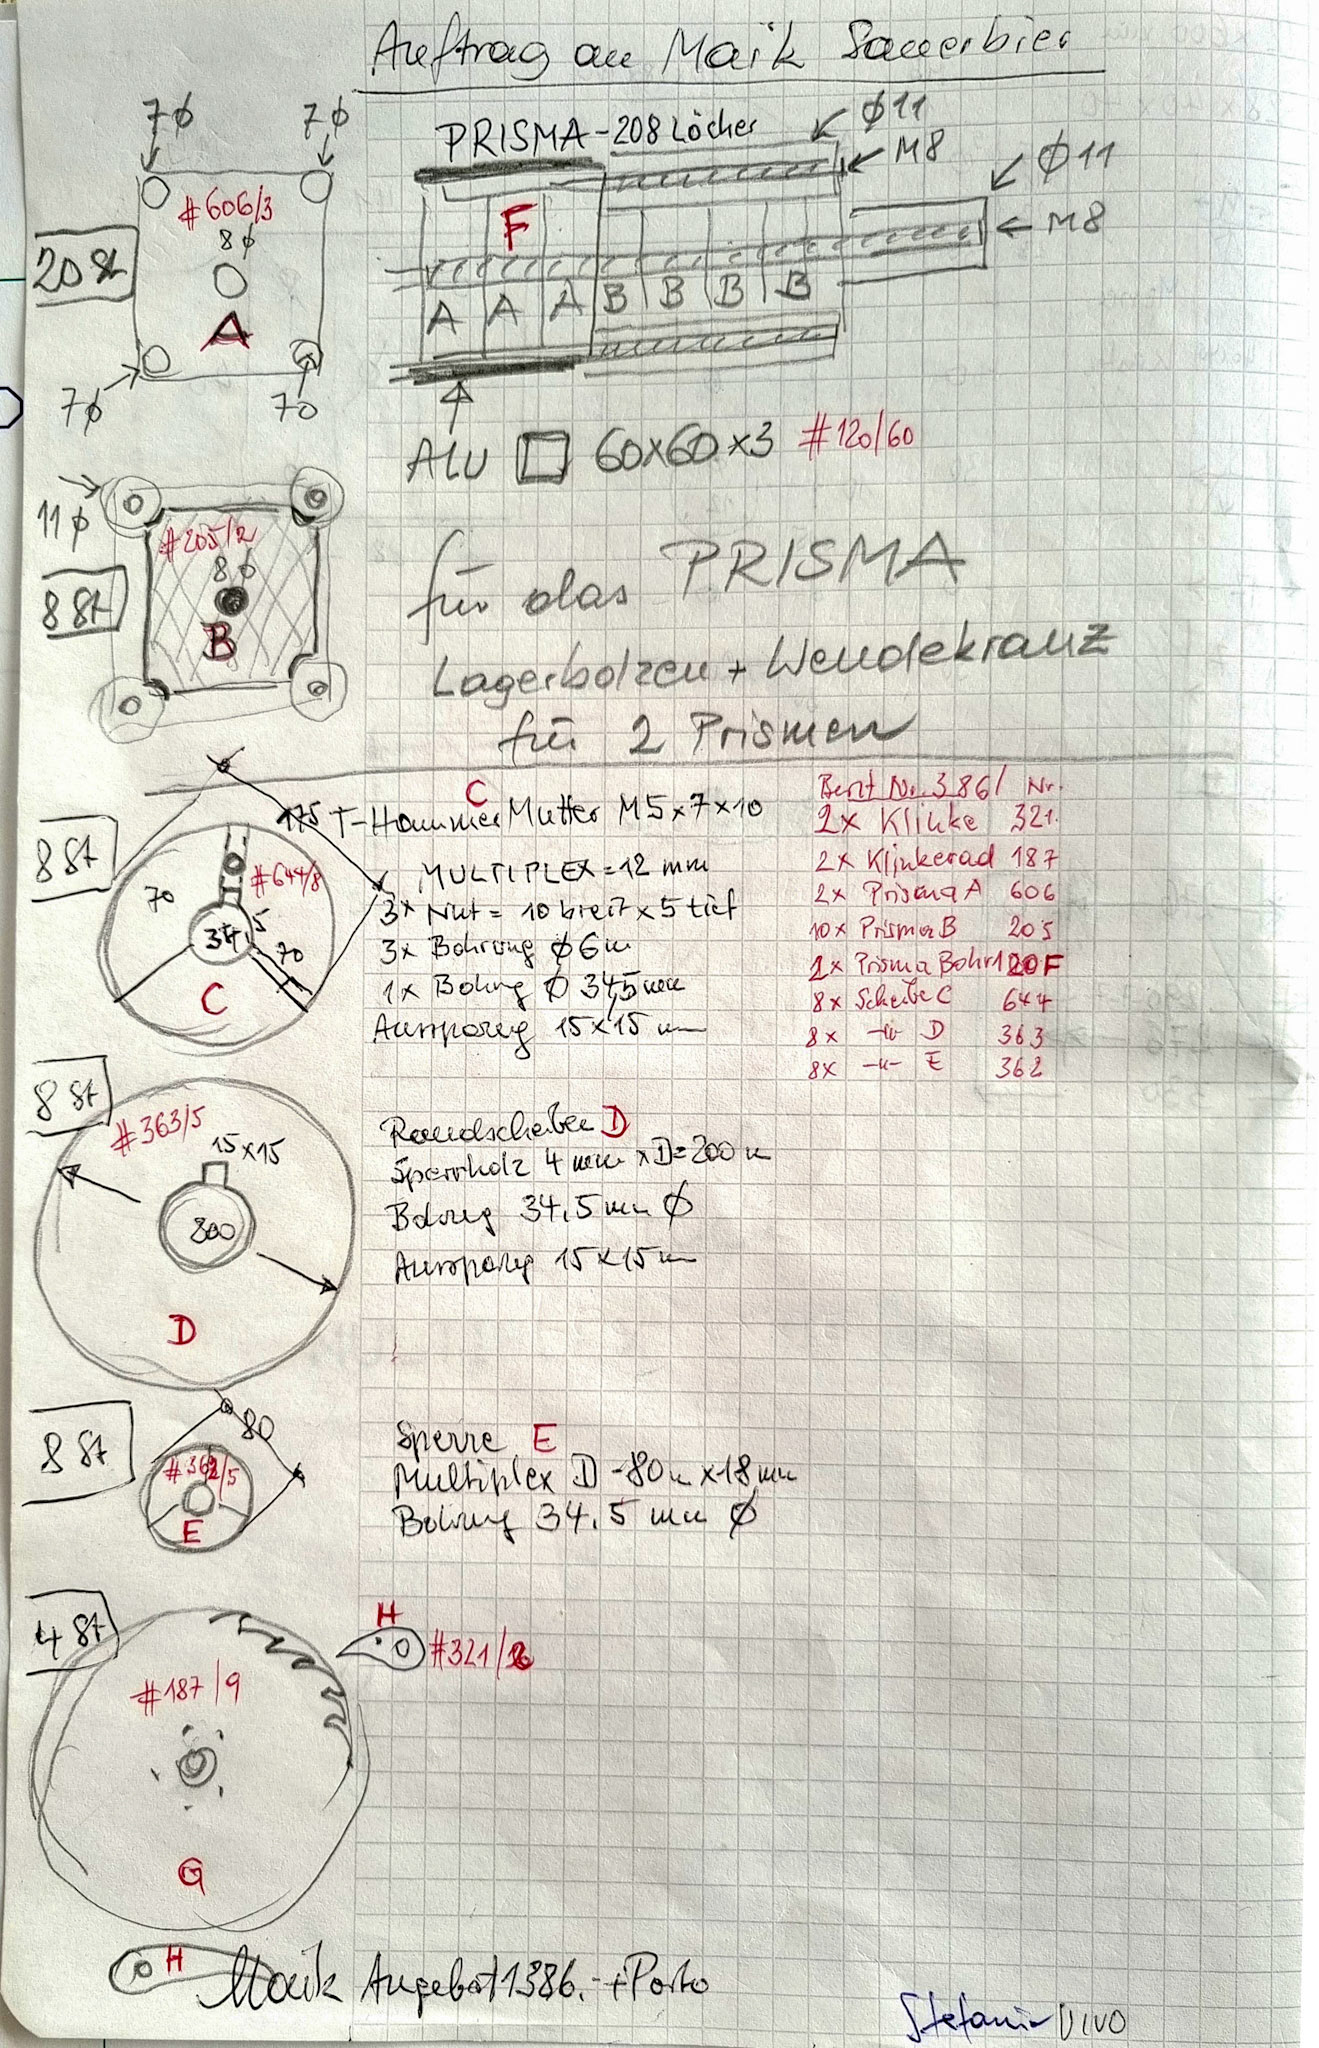 Auftrag an Maik Sauerbier
7ϕ 7ϕ
PRISMA - 208 Löcher
ϕ11
M8
ϕ11
M8
#606/3
8ϕ
20 St
A
7ϕ
70
F
A A A B B B B
ALU □ 60x60x3 #120/60
11ϕ
#205/2
8ϕ
8 St
B
für das PRISMA
Lagerbolzen + Wendekranz
für 2 Prismen
C
175 T-Hammer Mutter M5x7x10
8 St
70
#644/8
34
5
70
C
MULTIPLEX = 12 mm
3x Nut = 10 breit x 5 tief
3x Bohrung ϕ 6
1x Bohrg ϕ 34,5 mm
Aussparug 15x15
Nr. 386/ Nr.
2x Klinke 321
2x Klinkerad 187
2x Prisma A 606
10x Prisma B 205
2x Prisma Bohr 120 F
8x Scheibe C 644
8x -"- D 363
8x -"- E 362
8 St
#363/5
15x15
800
D
Randscheiben D
Sperrholz 4 mm x D=200
Bohrug 34,5 mm ϕ
Aussparug 15x15
8 St
80
E
Sperre E
Multiplex D-80 x 18 mm
Bohrug 34,5 mm ϕ
4 St
#187/9
G
H
#321/
H
Maik Angebot 1386.- + Porto
Stefanie VIVO